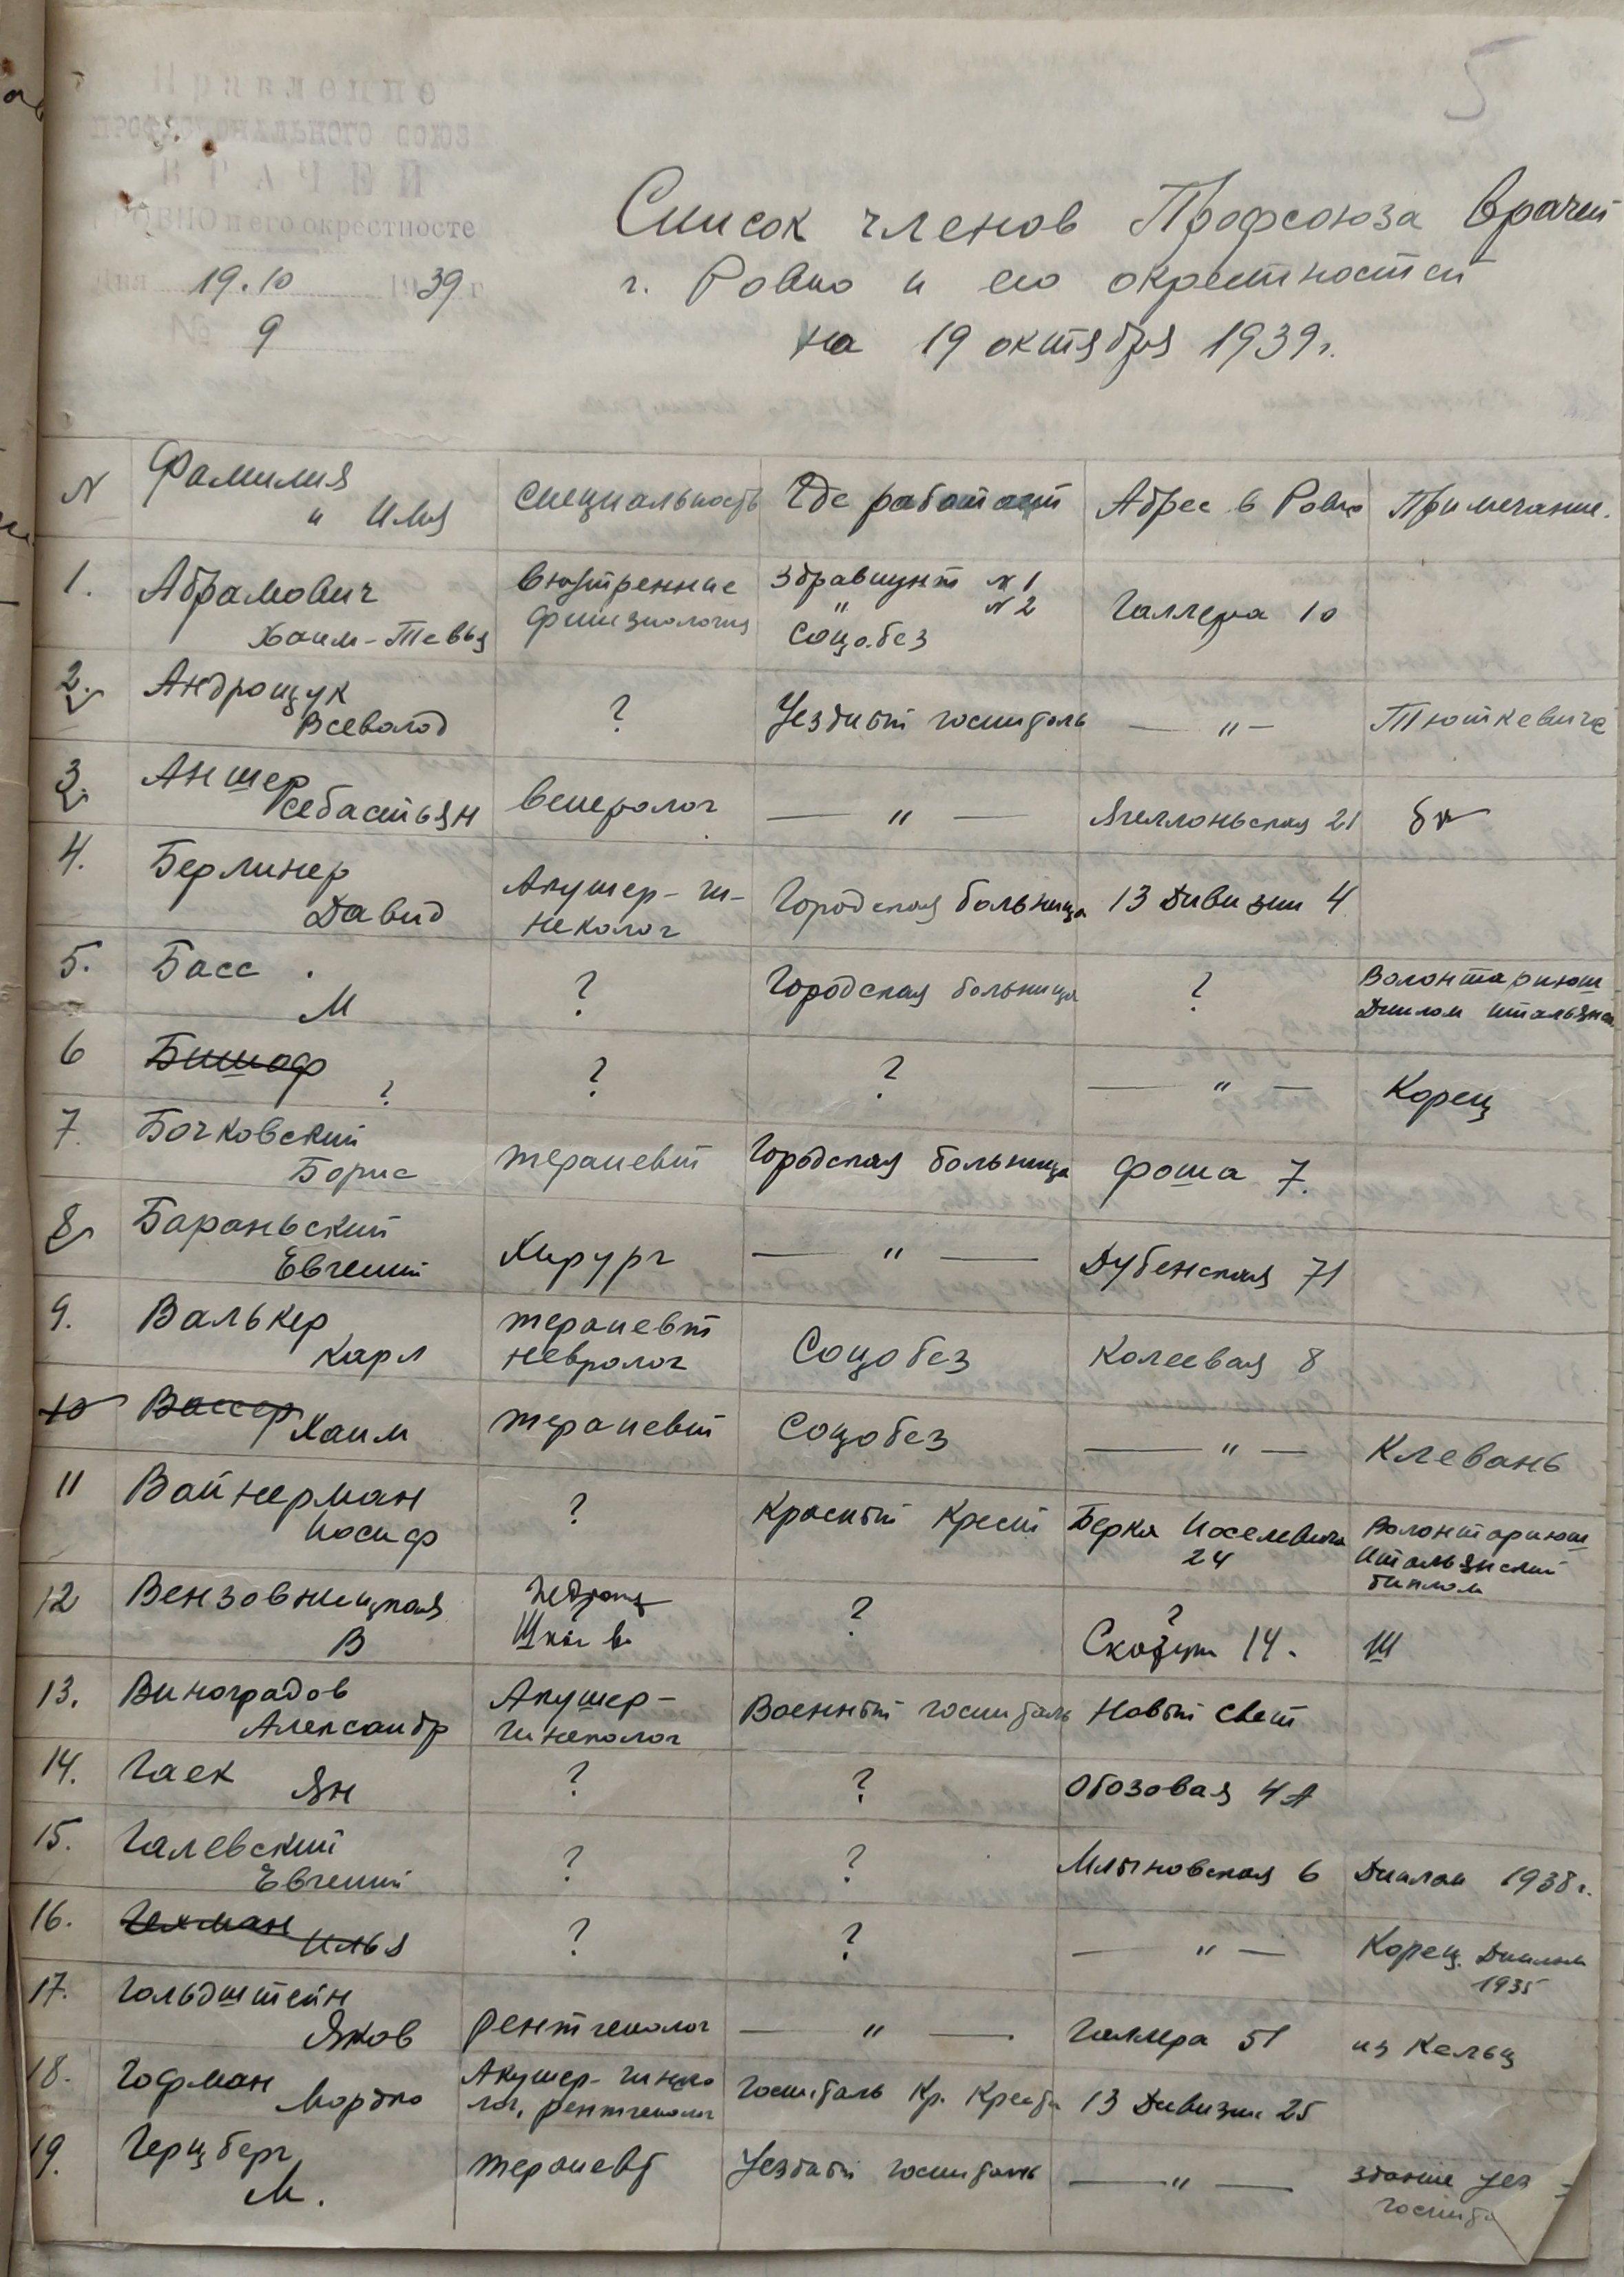 5
Правление
ПРОФЕССИОНАЛЬНОГО СОЮЗ
ВРАЧЕЙ
РОВНО и его окрестносте
дня 19.10 1939 г
№ 9
Список членов Профсоюза врачей
г. Ровно и его окрестностей
на 19 октября 1939 г.
N Фамилия и Имя Специальность Где работает Адрес в Ровно Примечание.
1. Абрамович Хаим-Тевья внутренние фтизиология Здравпункт N 1 " N 2 Соцобез Галлера 10
2. Андрощук Всеволод ? Уездный госпиталь — " — Тюткевичи
3. Аншер Себастьян венеролог — " — Ягеллоньская 21
4. Берлинер Давид Акушер-ги-неколог Городская больница 13 Дивизии 4
5. Басс М ? Городская больница ? Волонтариюш Диплом итальянск
6 Бишоф ? ? ? — " — Корец
7. Бочковский Борис терапевт Городская больница Фоша 7.
8. Бараньский Евгений Хирург — " — Дубенская 71
9. Валькер Карл терапевт невролог Соцобез Колеевая 8
10 Вассер Хаим терапевт Соцобез — " — Клевань
11 Вайнерман Иосиф ? Красный Крест Берка Иоселевича 24 Волонтариюш Итальянский диплом
12 Вензовницкая В ? ? 14. Ш
13. Виноградов Александр Акушер-гинеколог Военный госпиталь Новый Свет
14. Гаек Ян ? ? Обозовая 4А
15. Галевский Евгений ? ? Млыновская 6 Диплом 1938 г.
16. Гехман Илья ? ? — " — Корец. Диплом 1935
17. Гольдштейн Яков рентгенолог — " — Галлера 51 из Кельц
18. Гофман Мордко Акушер-гинеко лог, рентгенолог Госпиталь Кр. Креста 13 Дивизии 25
19. Герцберг М. терапевт Уездный госпиталь — " — здание уез госпита